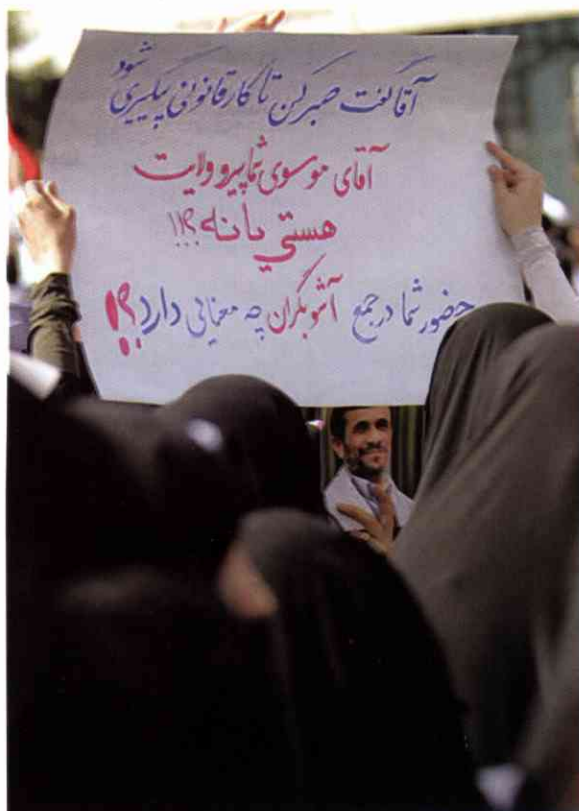 آقا گفت صبر کن تا کار قانونی پیگیری شود
آقای موسوی شما پیرو ولایت
هستی یا نه؟!!
حضور شما در جمع آشوبگران چه معنایی دارد؟!